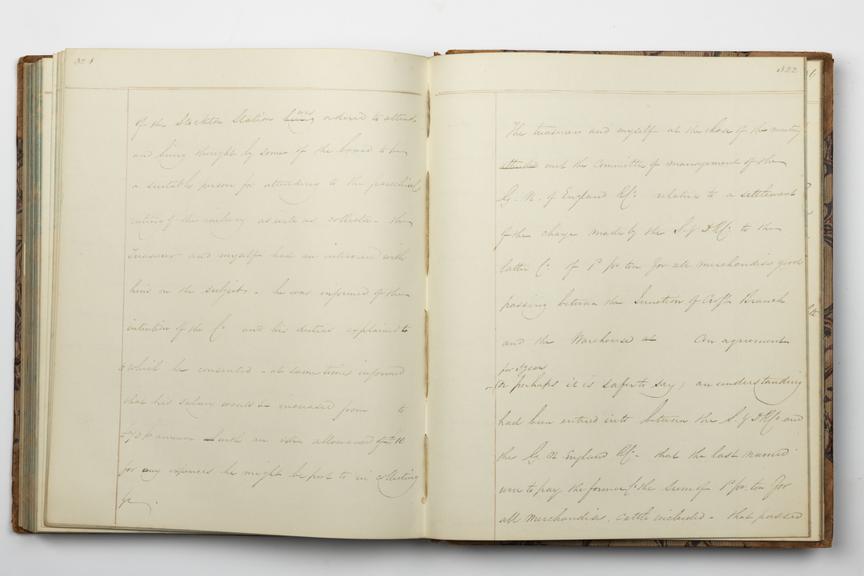 321
of the Stockton Station having ordered to attend
and being thought by some of the board to be
a suitable person for attending to the practical
of the railway as well as collector the
Treasurer and myself had an interview with
him on the subject - he was informed of the
intention of the Co and his duties explained to
which he consented - at same time informed
that his salary would be increased from to
annum with an allowance of 10
for any expenses he might be put to in collecting
&c
322
The treasurer and myself at the close of the meeting
attended met the Committee of management of the
G. N. of England RCo relative to a settlement
of the charge made by the S & D RCo to the
latter Co of 1d per ton for all merchandise goods
passing between the Junction of Croft Branch
and the Warehouse at An agreement
for 1 year
(or perhaps it is safer to say, an understanding
had been entered into between the S & D RCo and
the G. N. England RCo - that the last named
were to pay the former Co the sum of 1d per ton for
all merchandise, cattle included - that passed